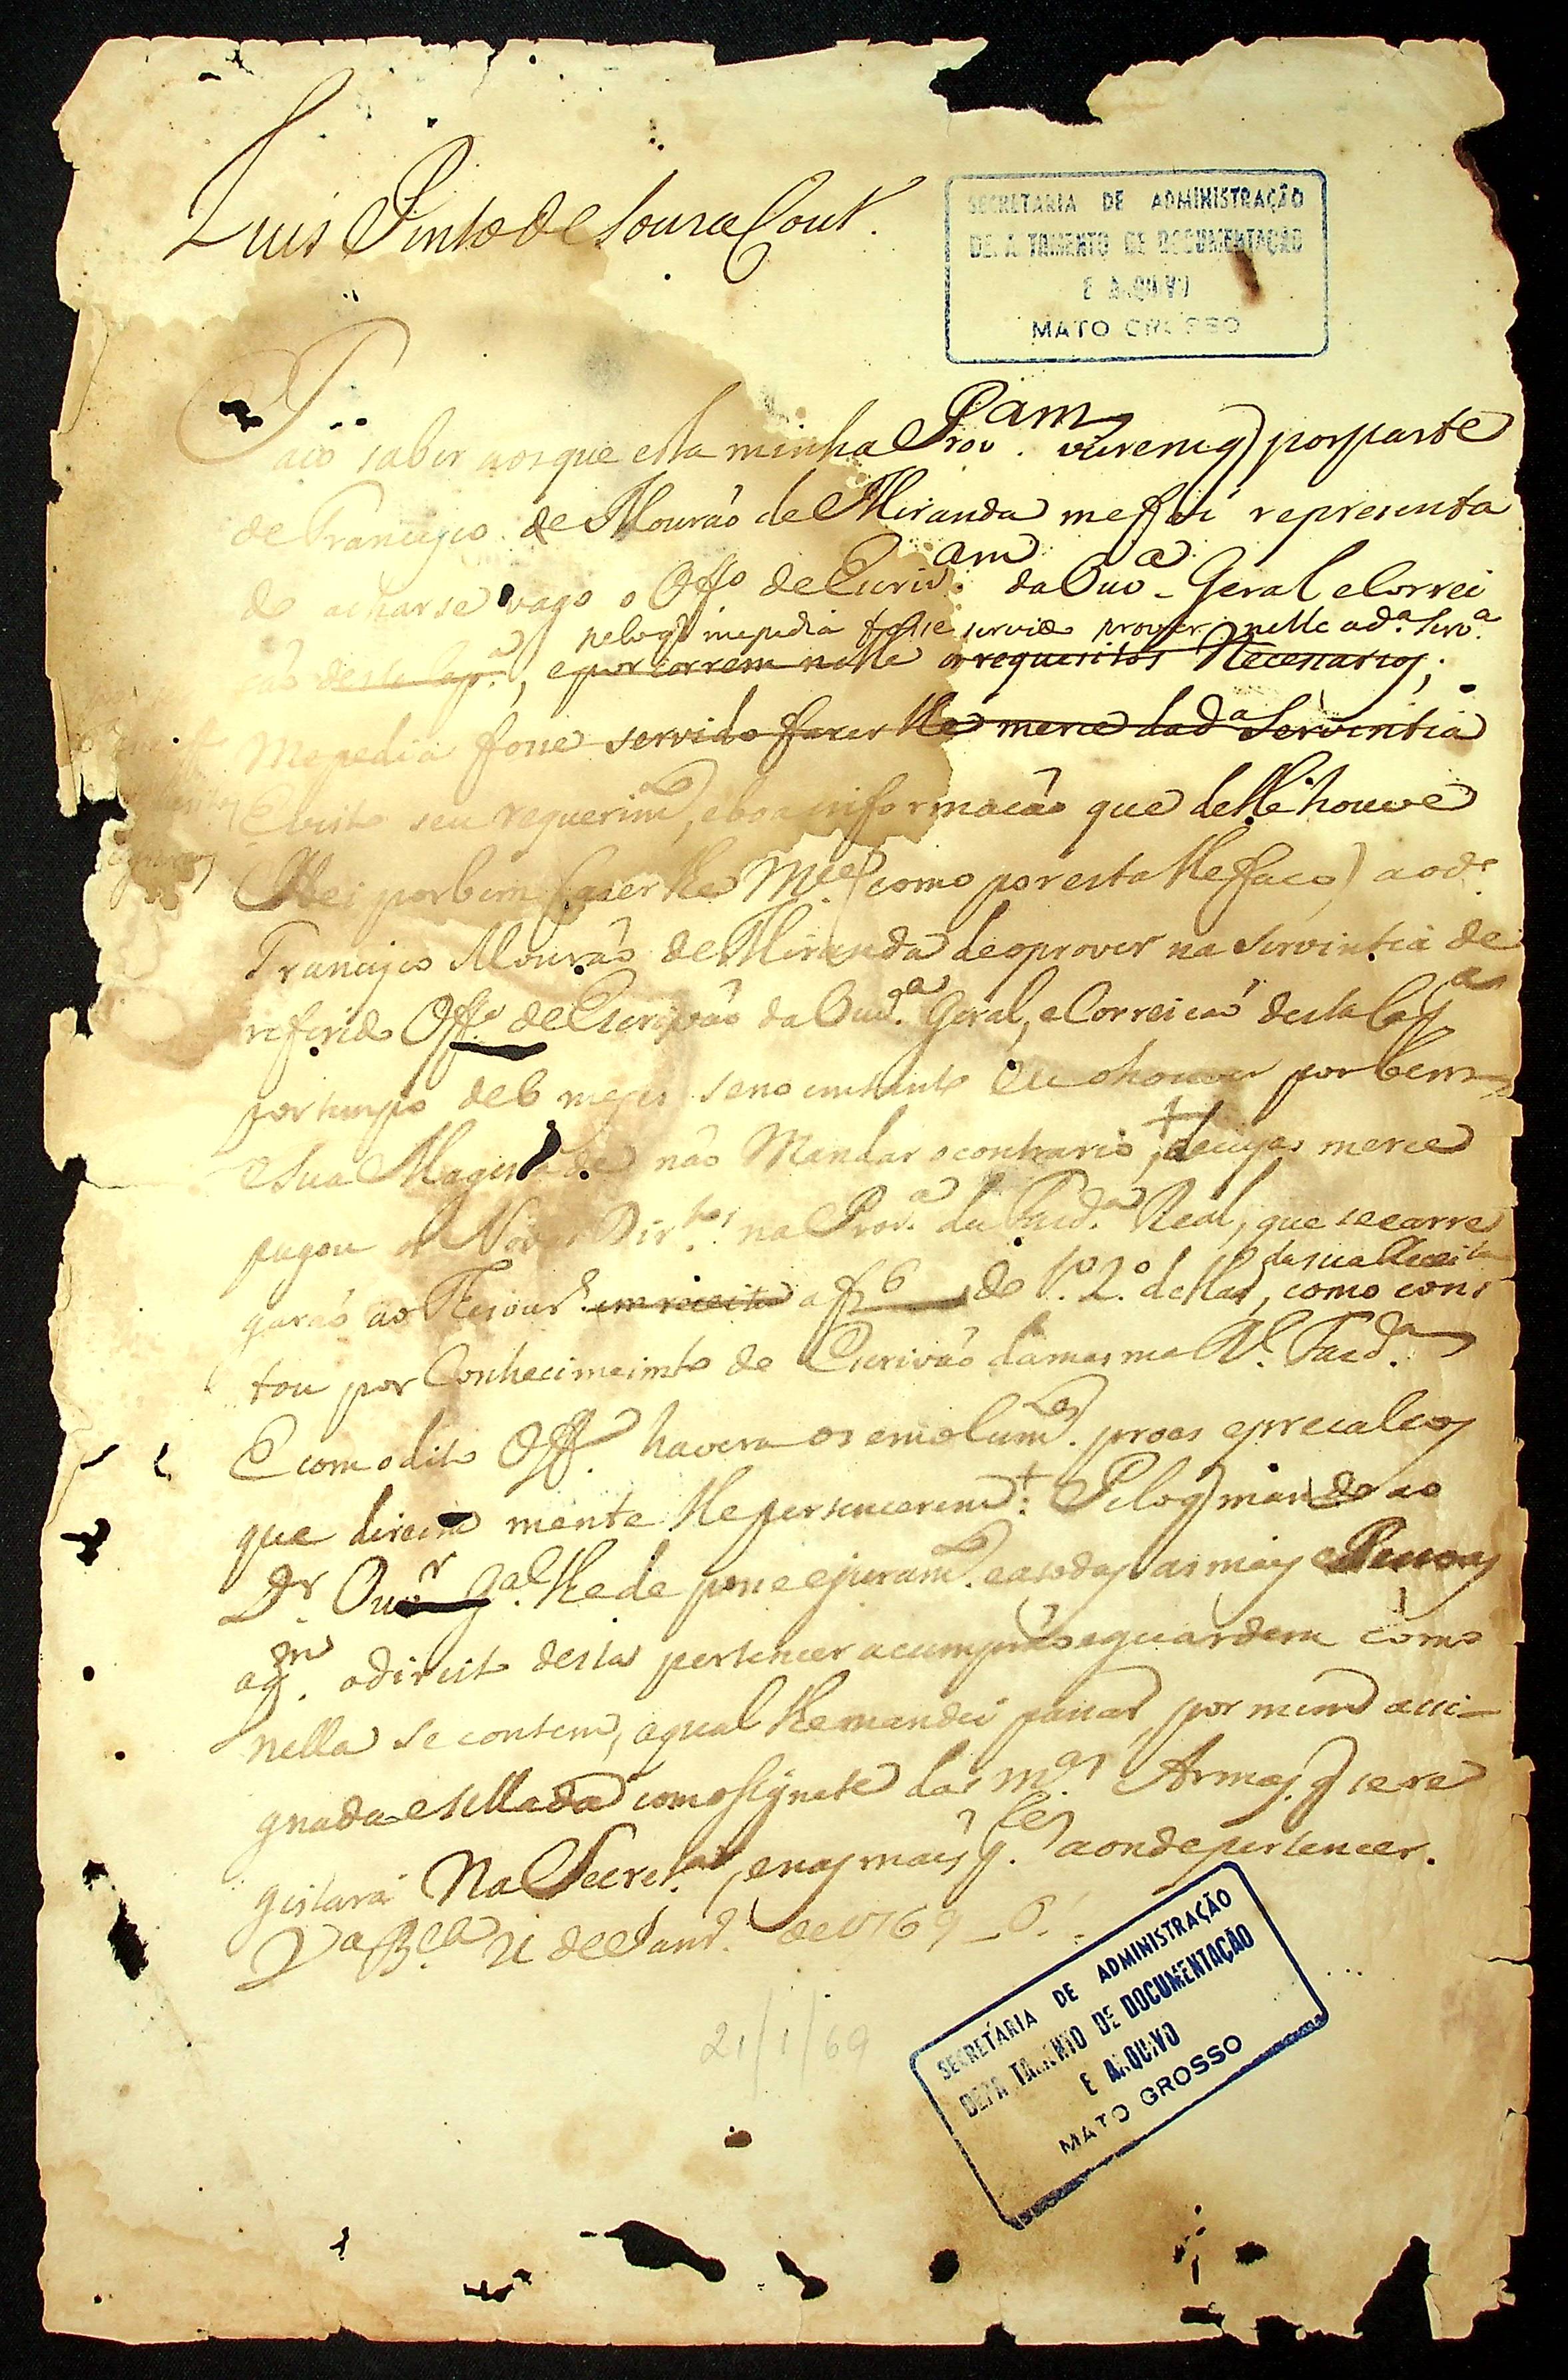 Luis Pinto de Souza Cout.º
SECRETARIA DE ADMINISTRAÇÃO
DEPARTAMENTO DE DOCUMENTAÇÃO
E ARQUIVO
MATO GROSSO
Faço saber aos que esta minha Provam virem q̃ por parte
de Francisco de Mourão de Miranda me foi representa
do acharse vago o Offo de Escrivam da Ouva Geral e Correi
pelo q̃ me pedia fosse servido prover nelle a da Serva
ção desta Capa, e por correrem nelle os requesitos Necessarios;
Me pedia fosse servido fazer lhe merce da da Serventia
E visto seu requerimto, e boa informação que delle houve
Hei por bem fazer lhe Mce (como por esta lhe faço) ao do
Francisco Mourão de Miranda de o prover na Serventia de
referido Offo de Escrivão da Ouva Geral, e Correição desta Capa
por tempo de 6 mezes se no emtanto Eu o houver por bem
e Sua Magestade não Mandar o contrario, de cuja merce
pagou os Novos Dirtos na Prova da Fazda Real, que se carre
da sua Receita
garão ao Thesouro em receita a f 6 do Lo 2o dellas, como cons
tou por Conhecimeinto do Escrivão da mesma Rl Fazda
E com o dito Offo havera os emolumtos proes e precalços
que direita mente lhe pertencerem: Pelo q̃ mando ao
Dr Ouvr Gal lhe de posse e juramto e a todas as mais Pessoas
a qm o direito desta pertencer a cumprão e guardem como
nella se contem, a qual lhe mandei passar por mim assi-
gnada e sellada com o signete das mas Armas q̃ se re
gistará Na Secreta, e nas mais ptes aonde pertencer.
Va Bela 21 de Janro de 1769
21/1/69
SECRETARIA DE ADMINISTRAÇÃO
DEPARTAMENTO DE DOCUMENTAÇÃO
E ARQUIVO
MATO GROSSO